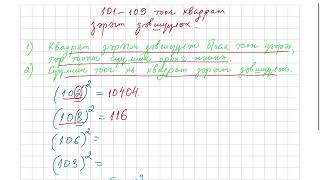 101-109 тоог квадрат
зэрэгт дэвшүүлэх
1) Квадрат зэрэгт дэвшүүлж байгаа тоон дээр,
тэр тооны сүүлийн
2) Сүүлийн тоог нь квадрат зэрэгт дэвшүүлнэ.
(102)² = 10404
(108)² = 116
(106)² =
(103)² =